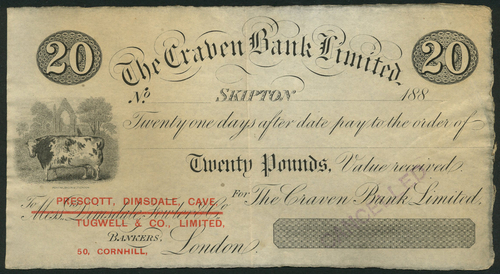 20 The Craven Bank Limited. 20
No SKIPTON 188
Twenty one days after date pay to the order of
Twenty Pounds, Value received
For The Craven Bank Limited,
PRESCOTT, DIMSDALE, CAVE,
To Mess.
TUGWELL & CO., LIMITED,
BANKERS,
50, CORNHILL, London.